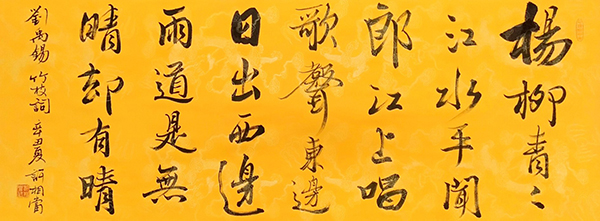 楊柳青〻
江水平聞
郎江上唱
歌聲東邊
日出西邊
雨道是無
晴却有晴
劉禹錫 竹枝詞 辛丑夏